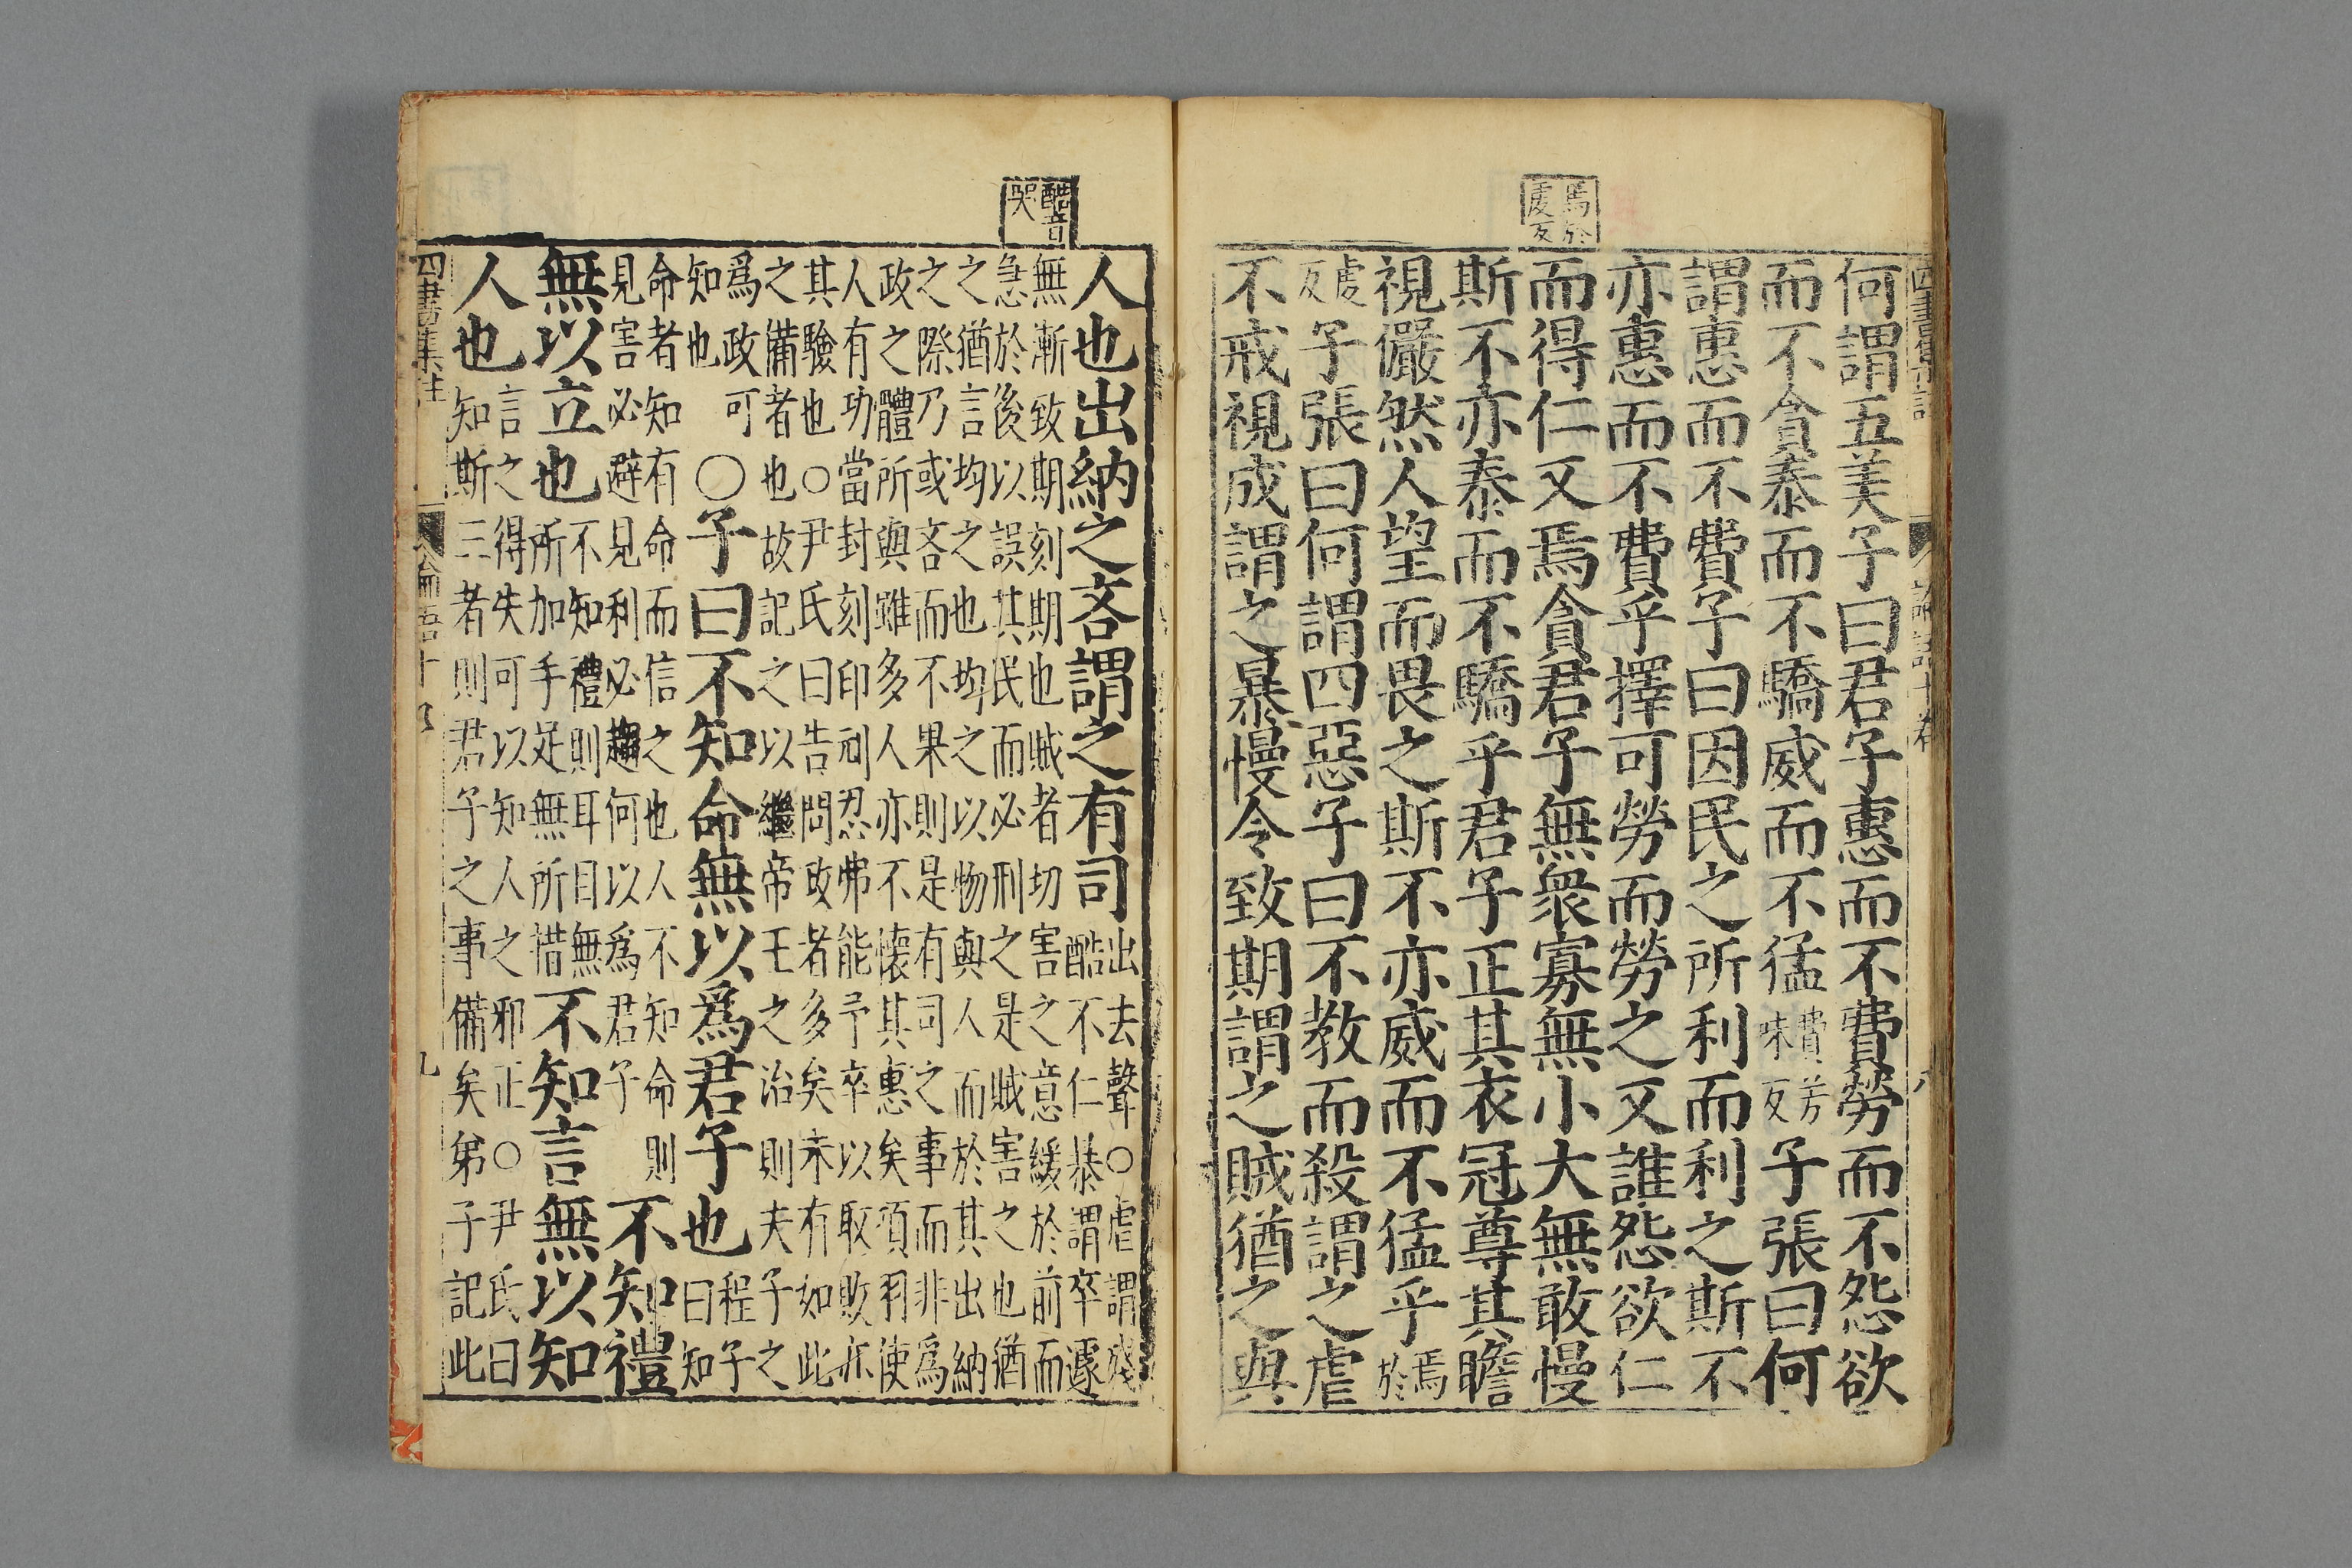 焉於
虔反
何謂五美子曰君子惠而不費勞而不怨欲
而不貪泰而不驕威而不猛費芳味反子張曰何
謂惠而不費子曰因民之所利而利之斯不
亦惠而不費乎擇可勞而勞之又誰怨欲仁
而得仁又焉貪君子無衆寡無小大無敢慢
斯不亦泰而不驕乎君子正其衣冠尊其瞻
視儼然人望而畏之斯不亦威而不猛乎焉於
虔反子張曰何謂四惡子曰不教而殺謂之虐
不戒視成謂之暴慢令致期謂之賊猶之與
酷音
哭
人也出納之吝謂之有司出去聲○虐謂殘
酷不仁暴謂卒遽
無漸致期刻期也賊者切害之意緩於前而
急於後以誤其民而必刑之是賊害之也猶
之猶言均之也均之以物與人而於其出納
之際乃或吝而不果則是有司之事而非爲
政之體所與雖多人亦不懷其惠矣項羽使
人有功當封刻印刓忍弗能予卒以取敗亦
其驗也○尹氏曰告問政者多矣未有如此
之備者也故記之以繼帝王之治則夫子之
爲政可
知也
○子曰不知命無以爲君子也程子
曰知
命者知有命而信之也人不知命則
見害必避見利必趨何以爲君子
不知禮
無以立也不知禮則耳目無
所加手足無所措
不知言無以知
人也言之得失可以知人之邪正○尹氏曰
知斯三者則君子之事備矣弟子記此
四書集註
論語十
九